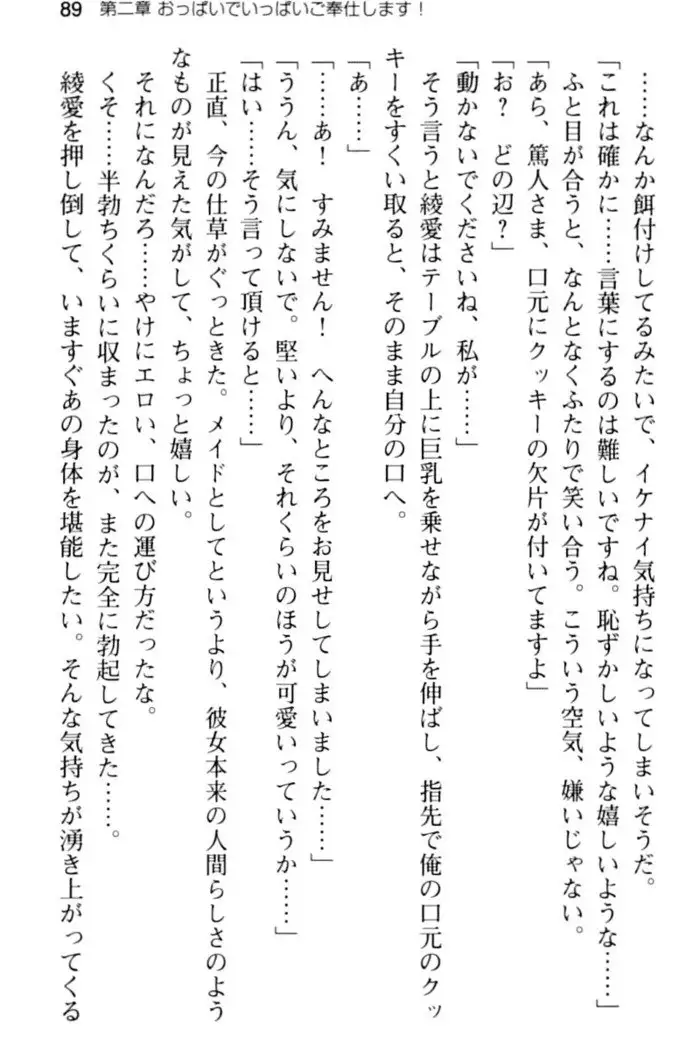 89 第二章 おっぱいでいっぱいご奉仕します！
……なんか餌付けしてるみたいで、イケナイ気持ちになってしまいそうだ。
「これは確かに……言葉にするのは難しいですね。恥ずかしいような嬉しいような……」
ふと目が合うと、なんとなくふたりで笑い合う。こういう空気、嫌いじゃない。
「あら、篤人さま、口元にクッキーの欠片が付いてますよ」
「お？　どの辺？」
「動かないでくださいね、私が……」
そう言うと綾愛はテーブルの上に巨乳を乗せながら手を伸ばし、指先で俺の口元のクッ
キーをすくい取ると、そのまま自分の口へ。
「あ……」
「……あ！　すみません！　へんなところをお見せしてしまいました……」
「ううん、気にしないで。堅いより、それくらいのほうが可愛いっていうか……」
「はい……そう言って頂けると……」
正直、今の仕草がぐっときた。メイドとしてというより、彼女本来の人間らしさのよう
なものが見えた気がして、ちょっと嬉しい。
それになんだろ……やけにエロい、口への運び方だったな。
くそ……半勃ちくらいに収まったのが、また完全に勃起してきた……。
綾愛を押し倒して、いますぐあの身体を堪能したい。そんな気持ちが湧き上がってくる